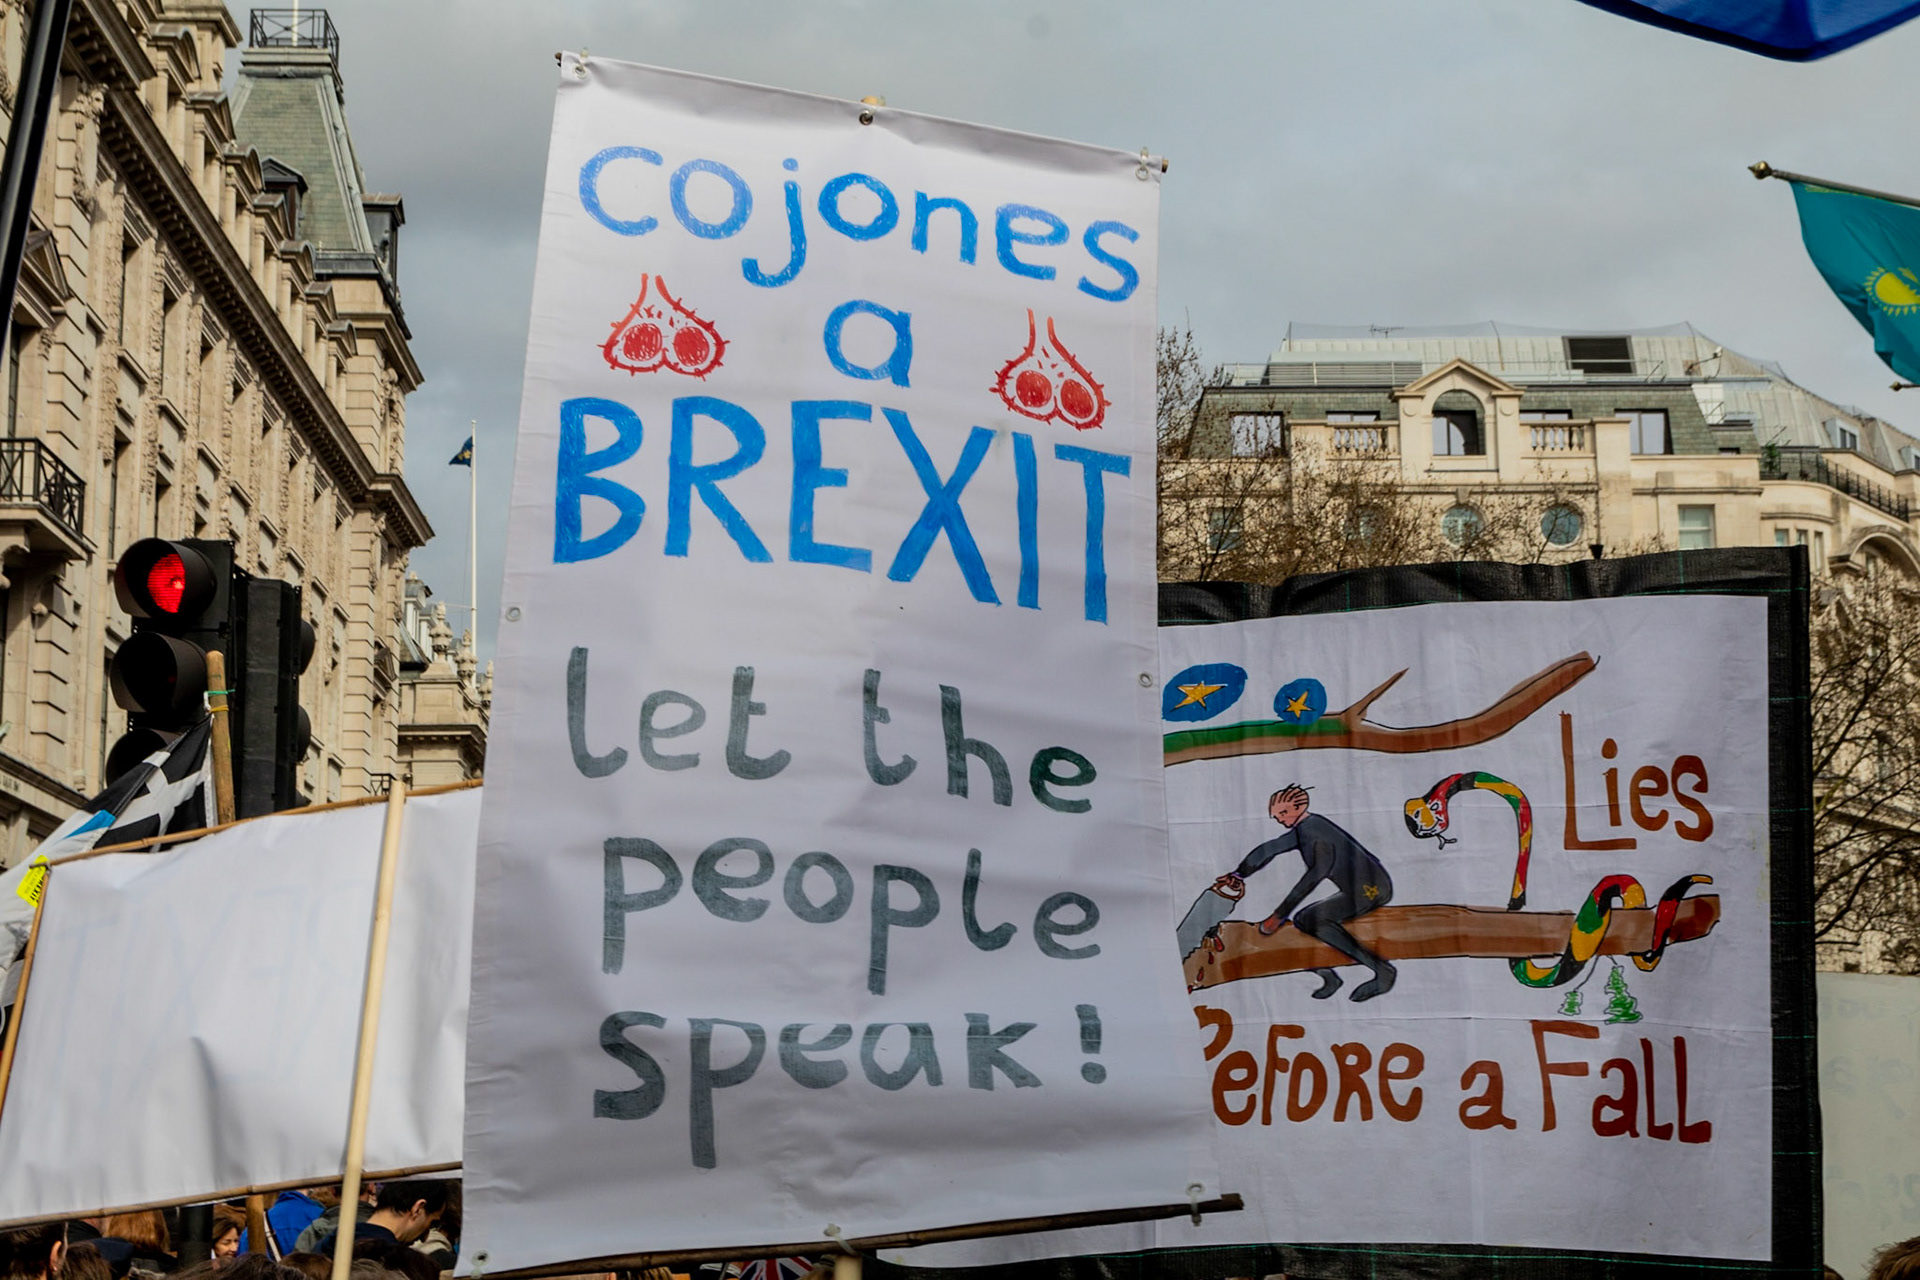 cojones
a
BREXIT
let the
people
speak!
Lies
Before a Fall